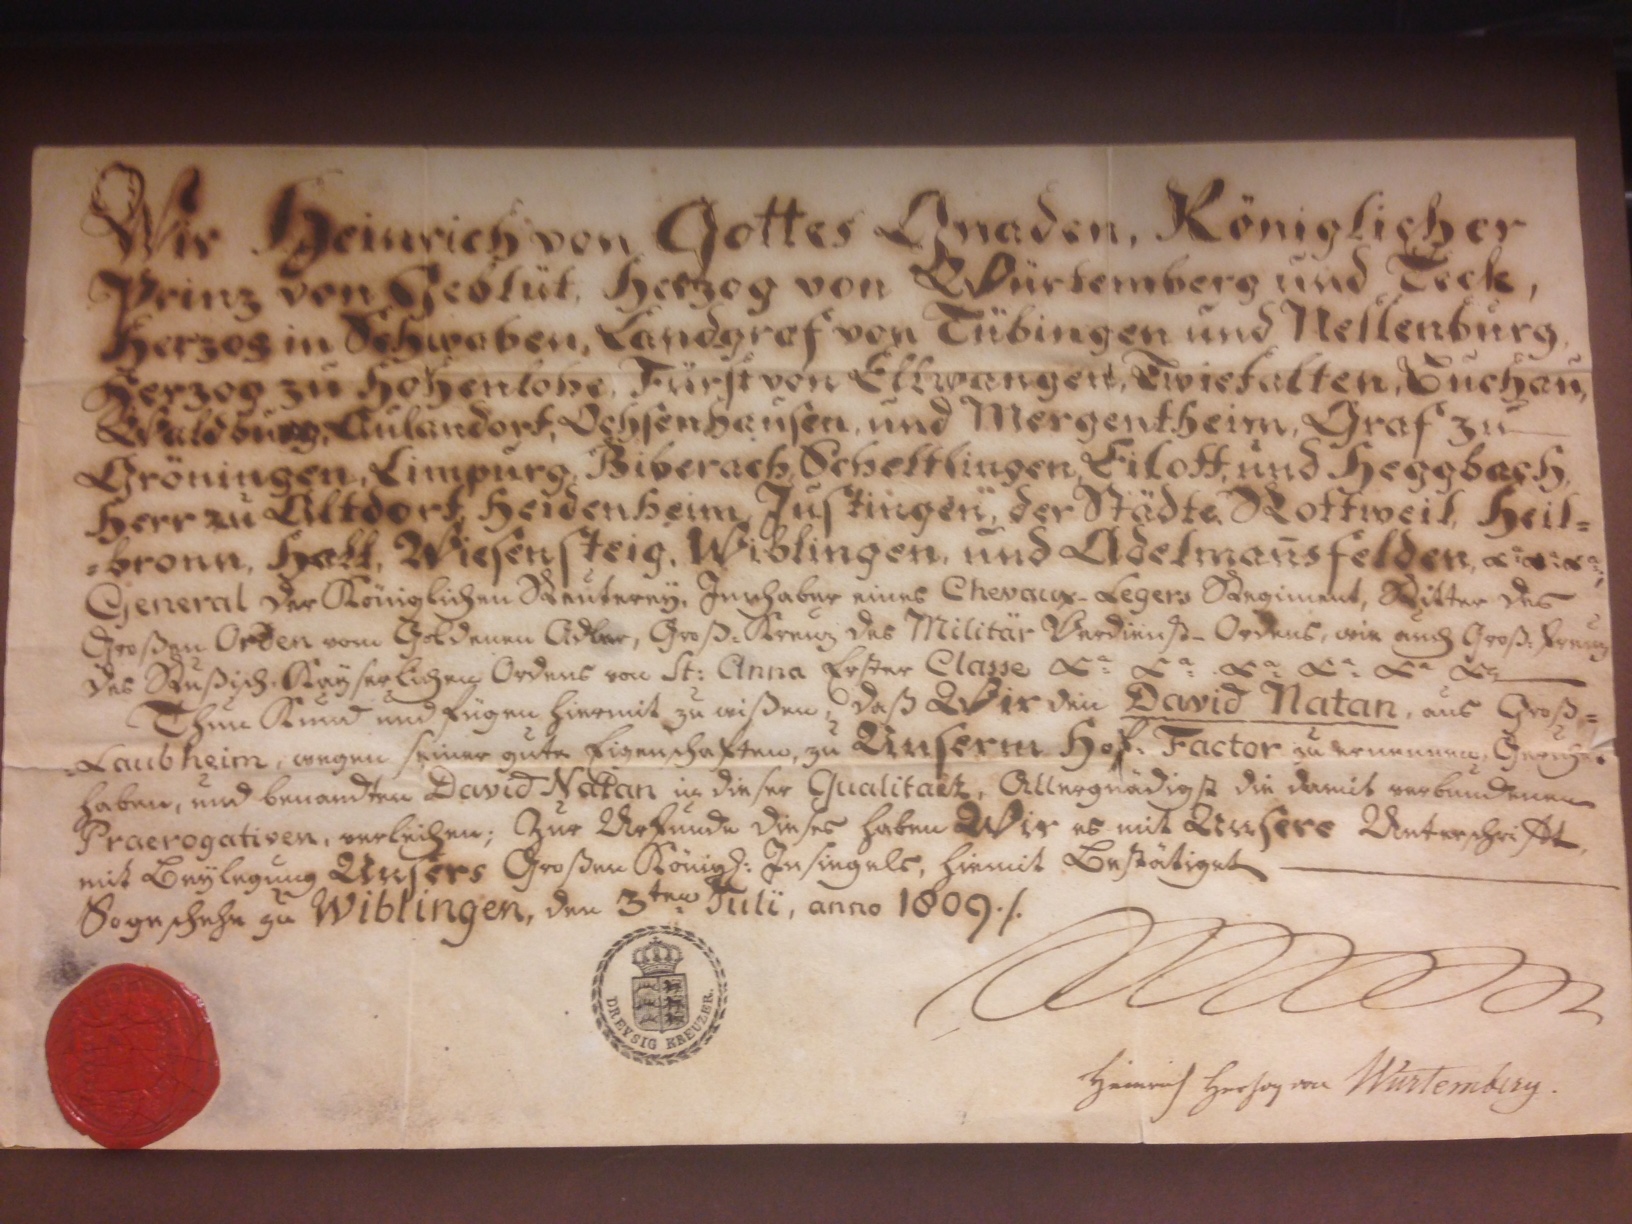 Wir Heinrich von Gottes Gnaden, Königlicher
Prinz von Geblüt, Herzog von Würtemberg und Teck,
Herzog in Schwaben, Landgraf von Tübingen und Nellenburg,
Herzog zu Hohenlohe, Fürst von Ellwangen, Zwiefalten, Buchau,
Waldburg, Aulandorf, Ochsenhausen, und Mergentheim, Graf zu
Gröningen, Limpurg, Biberach, Scheltlingen, Eiloff, und Heggbach,
Herr zu Altdorf, Heidenheim, Justingen, der Städte Rottweil, Heil=
=bronn, Hall, Wiesensteig, Wiblingen, und Adelmañsfelden,
General der Königlichen Reuterey, Innhaber eines Chevaux-Legers Regiment, Ritter des
Großen Orden vom Goldenen Adler, Groß=Kreuz des Militär Verdienst-Ordens, wie auch Groß=Kreuz
des Rußisch-Kayserlichen Ordens von St: Anna Erster Classe
Thun Kund und fügen hiermit zu wißen, daß Wir den David Natan, aus Groß=
=Laubheim, wegen seiner gute Eigenschaften, zu Unserm Hof=Factor zu ernennen, Geruhet
haben, und benandten David Natan in dieser Qualitaet, Allergnädigst die damit verbundenen
Praerogativen, verleihen; Zur Urkunde dieses haben Wir es mit Unsere Unterschrift,
mit Beylegung Unsers Großen Königl: Insiegels, hiemit Bestätiget
So geschehn zu Wiblingen, den 3ten Julÿ, anno 1809./.
DREYSIG KREUZER.
Heinrich Herzog von Würtemberg.